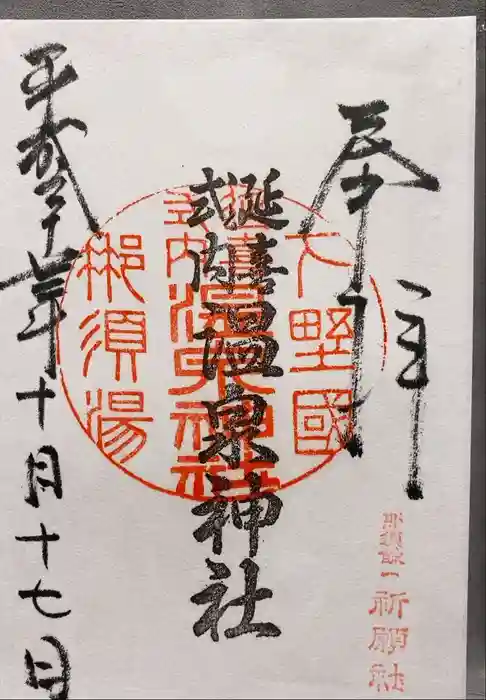 奉拝
下野國
延喜
式内
温泉神社
延喜
式内
温泉神社
那須湯
平成二十七年十月十七日
祈願社